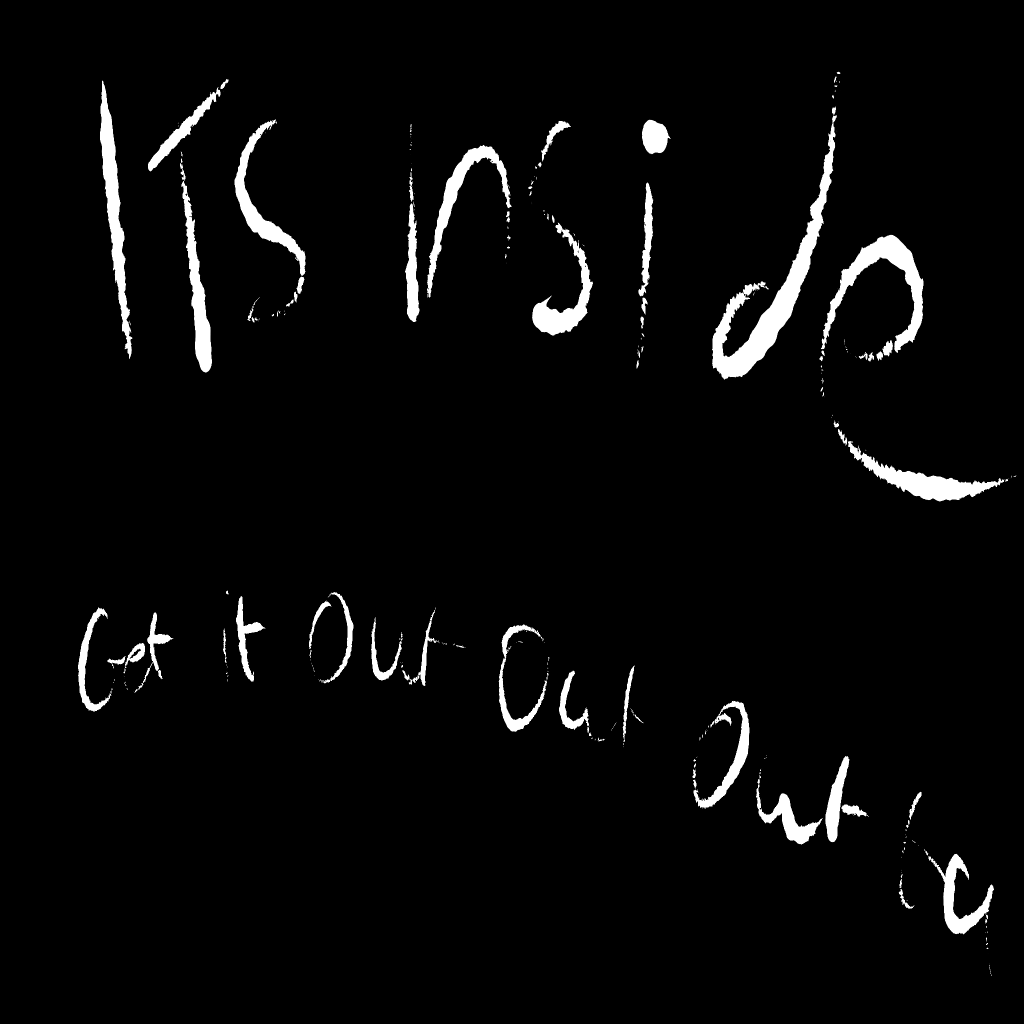 ITs Inside
Get it Out Out Out